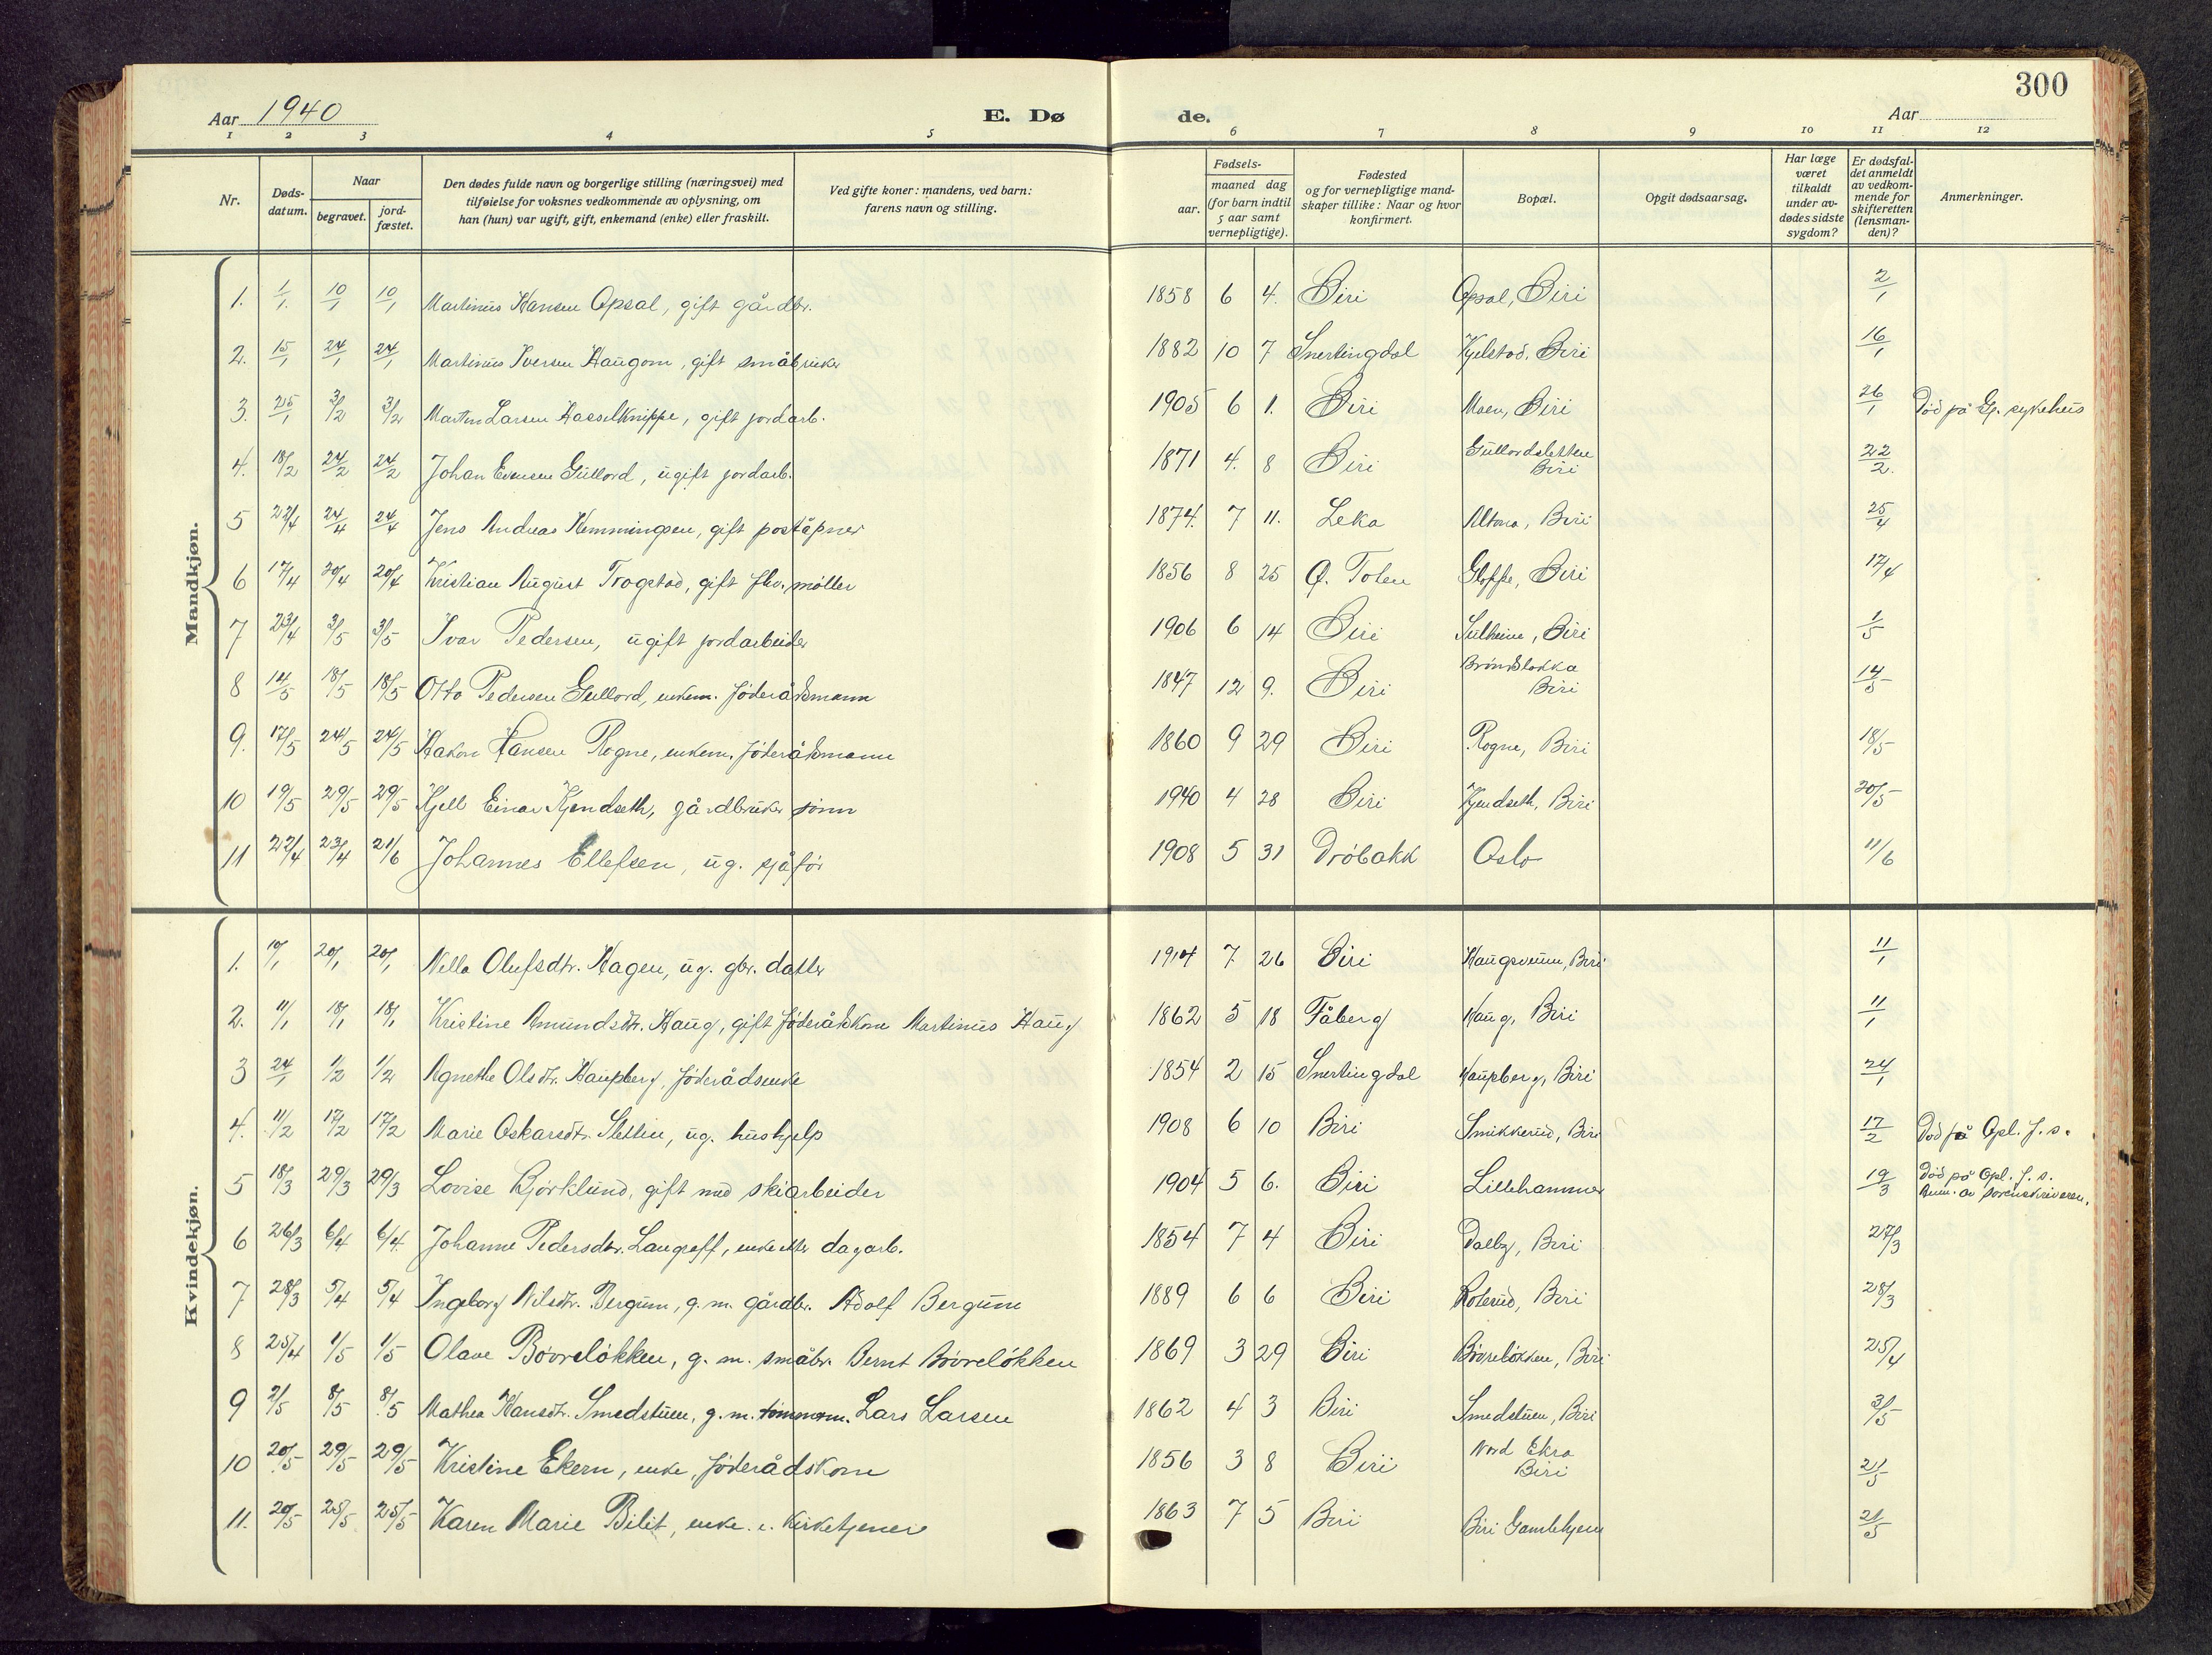 300
Aar 1940
E. Dø
de.
Aar
1 2 3 4 5 6 7 8 9 10 11 12
Nr.
Døds-
datum.
Naar
begravet.
jord-
fæstet.
Den dødes fulde navn og borgerlige stilling (næringsvei) med
tilføielse for voksnes vedkommende av oplysning, om
han (hun) var ugift, gift, enkemand (enke) eller fraskilt.
Ved gifte koner: mandens, ved barn:
farens navn og stilling.
Fødsels-
aar.
maaned dag
(for barn indtil
5 aar samt
vernepligtige).
Fødested
og for vernepligtige mand-
skaper tillike: Naar og hvor
konfirmert.
Bopæl.
Opgit dødsaarsag.
Har læge
været
tilkaldt
under av-
dødes sidste
sygdom?
Er dødsfal-
det anmeldt
av vedkom-
mende for
skifteretten
(lensman-
den)?
Anmerkninger.
Mandkjøn.
1. 1/1. 10/1 10/1 Martinius Hansen Opsal, gift gårdbr. 1858 6 4. Biri Opsal, Biri 2/1
2. 15/1 24/1 24/1 Martinius Iversen Haugom, gift småbruker 1882 10 7 Snertingdal Kjelstad, Biri 16/1
3. 25/1 3/2 3/2 Martin Larsen Hasselknippe, gift jordarb. 1905 6 1. Biri Moen, Biri 26/1 Død på Gj. sykehus
4. 18/2 24/2 24/2 Johan Evensen Gullord, ugift jordarb. 1871 4. 8 Biri Gullordsletten
Biri 22/2.
5 22/4 24/4 24/4 Jens Andreas Hemmingsen, gift poståpner 1874. 7 11. Leka Altona, Biri 25/4
6 17/4 20/4 20/4 Kristian August Trogstad, gift fhv. møller 1856 8 25 Ø. Toten Gloppe, Biri 17/4
7 23/4 3/5 3/5 Ivar Pedersen, ugift jordarbeider 1906 6 14 Biri Sulheim, Biri 1/5
8 14/5 18/5 18/5 Otto Pedersen Gullord, enkem. föderådsmann 1847 12 9. Biri Brønsløkka
Biri 14/5
9. 17/5 24/5 24/5 Hakon Hansen Rogne, enkem. föderådsmann 1860 9 29 Biri Rogne, Biri 18/5
10 19/5 29/5 29/5 Kjell Einar Kjendseth, gårdbruker sønn 1940 4 28 Biri Kjendseth, Biri 20/5
11 22/4 23/4 21/6 Johannes Ellefsen, ug. sjåför 1908 5 31 Drøbakk Oslo 11/6
Kvindekjøn.
1. 10/1 20/1 20/1 Nella Olufsdtr. Hagen, ug. gbr. datter 1914 7. 26 Biri Haugsveum, Biri 11/1
2. 11/1 18/1 18/1 Kristine Amundsdtr. Haug, gift föderådskone Martinius Haug 1862 5 18 Fåberg Haug, Biri 11/1
3 24/1 1/2 1/2 Agnethe Olsdtr. Haupberg, föderådsenke 1854 2 15 Snertingdal Haupberg, Biri 24/1
4. 11/2 17/2 17/2 Marie Oskarsdtr. Sletten, ug. hushjelp 1908 6 10 Biri Smikkerud, Biri 17/2 Død på Opl. f. s.
5 18/3 29/3 29/3 Lovise Bjørklund, gift med skiarbeider 1904 5 6. Biri Lillehammer 19/3 Død på Opl. f. s.
Anm. av sorenskriveren.
6 26/3 6/4 6/4. Johanne Pedersdtr. Langseff, enke etter dagarb. 1854 7 4 Biri Dalby, Biri 27/3
7 28/3 5/4 5/4 Ingeborg Nilsdtr. Bergum, g. m. gårdbr. Adolf Bergum 1889 6 6 Biri Roterud, Biri 28/3
8 25/4 1/5 1/5 Olave Bøvreløkken, g. m. småbr. Bernt Bøvreløkken 1869 3 29 Biri Bøvreløkken, Biri 25/4
9 2/5 8/5 8/5 Mathea Hansdtr. Smedstuen, g. m. tømmerm. Lars Larsen 1862 4 3 Biri Smedstuen, Biri 3/5
10 20/5 29/5 29/5 Kristine Ekern, enke, föderådskone 1856 3 8 Biri Nord Ekra
Biri 21/5
11. 20/5 25/5 25/5 Karen Marie Bilit, enke. e. Kirketjener 1863 7 5 Biri Biri Gamlehjem 21/5